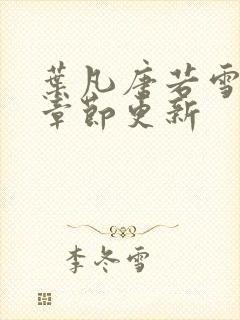 葉凡唐若雪
章節更新
李冬雪